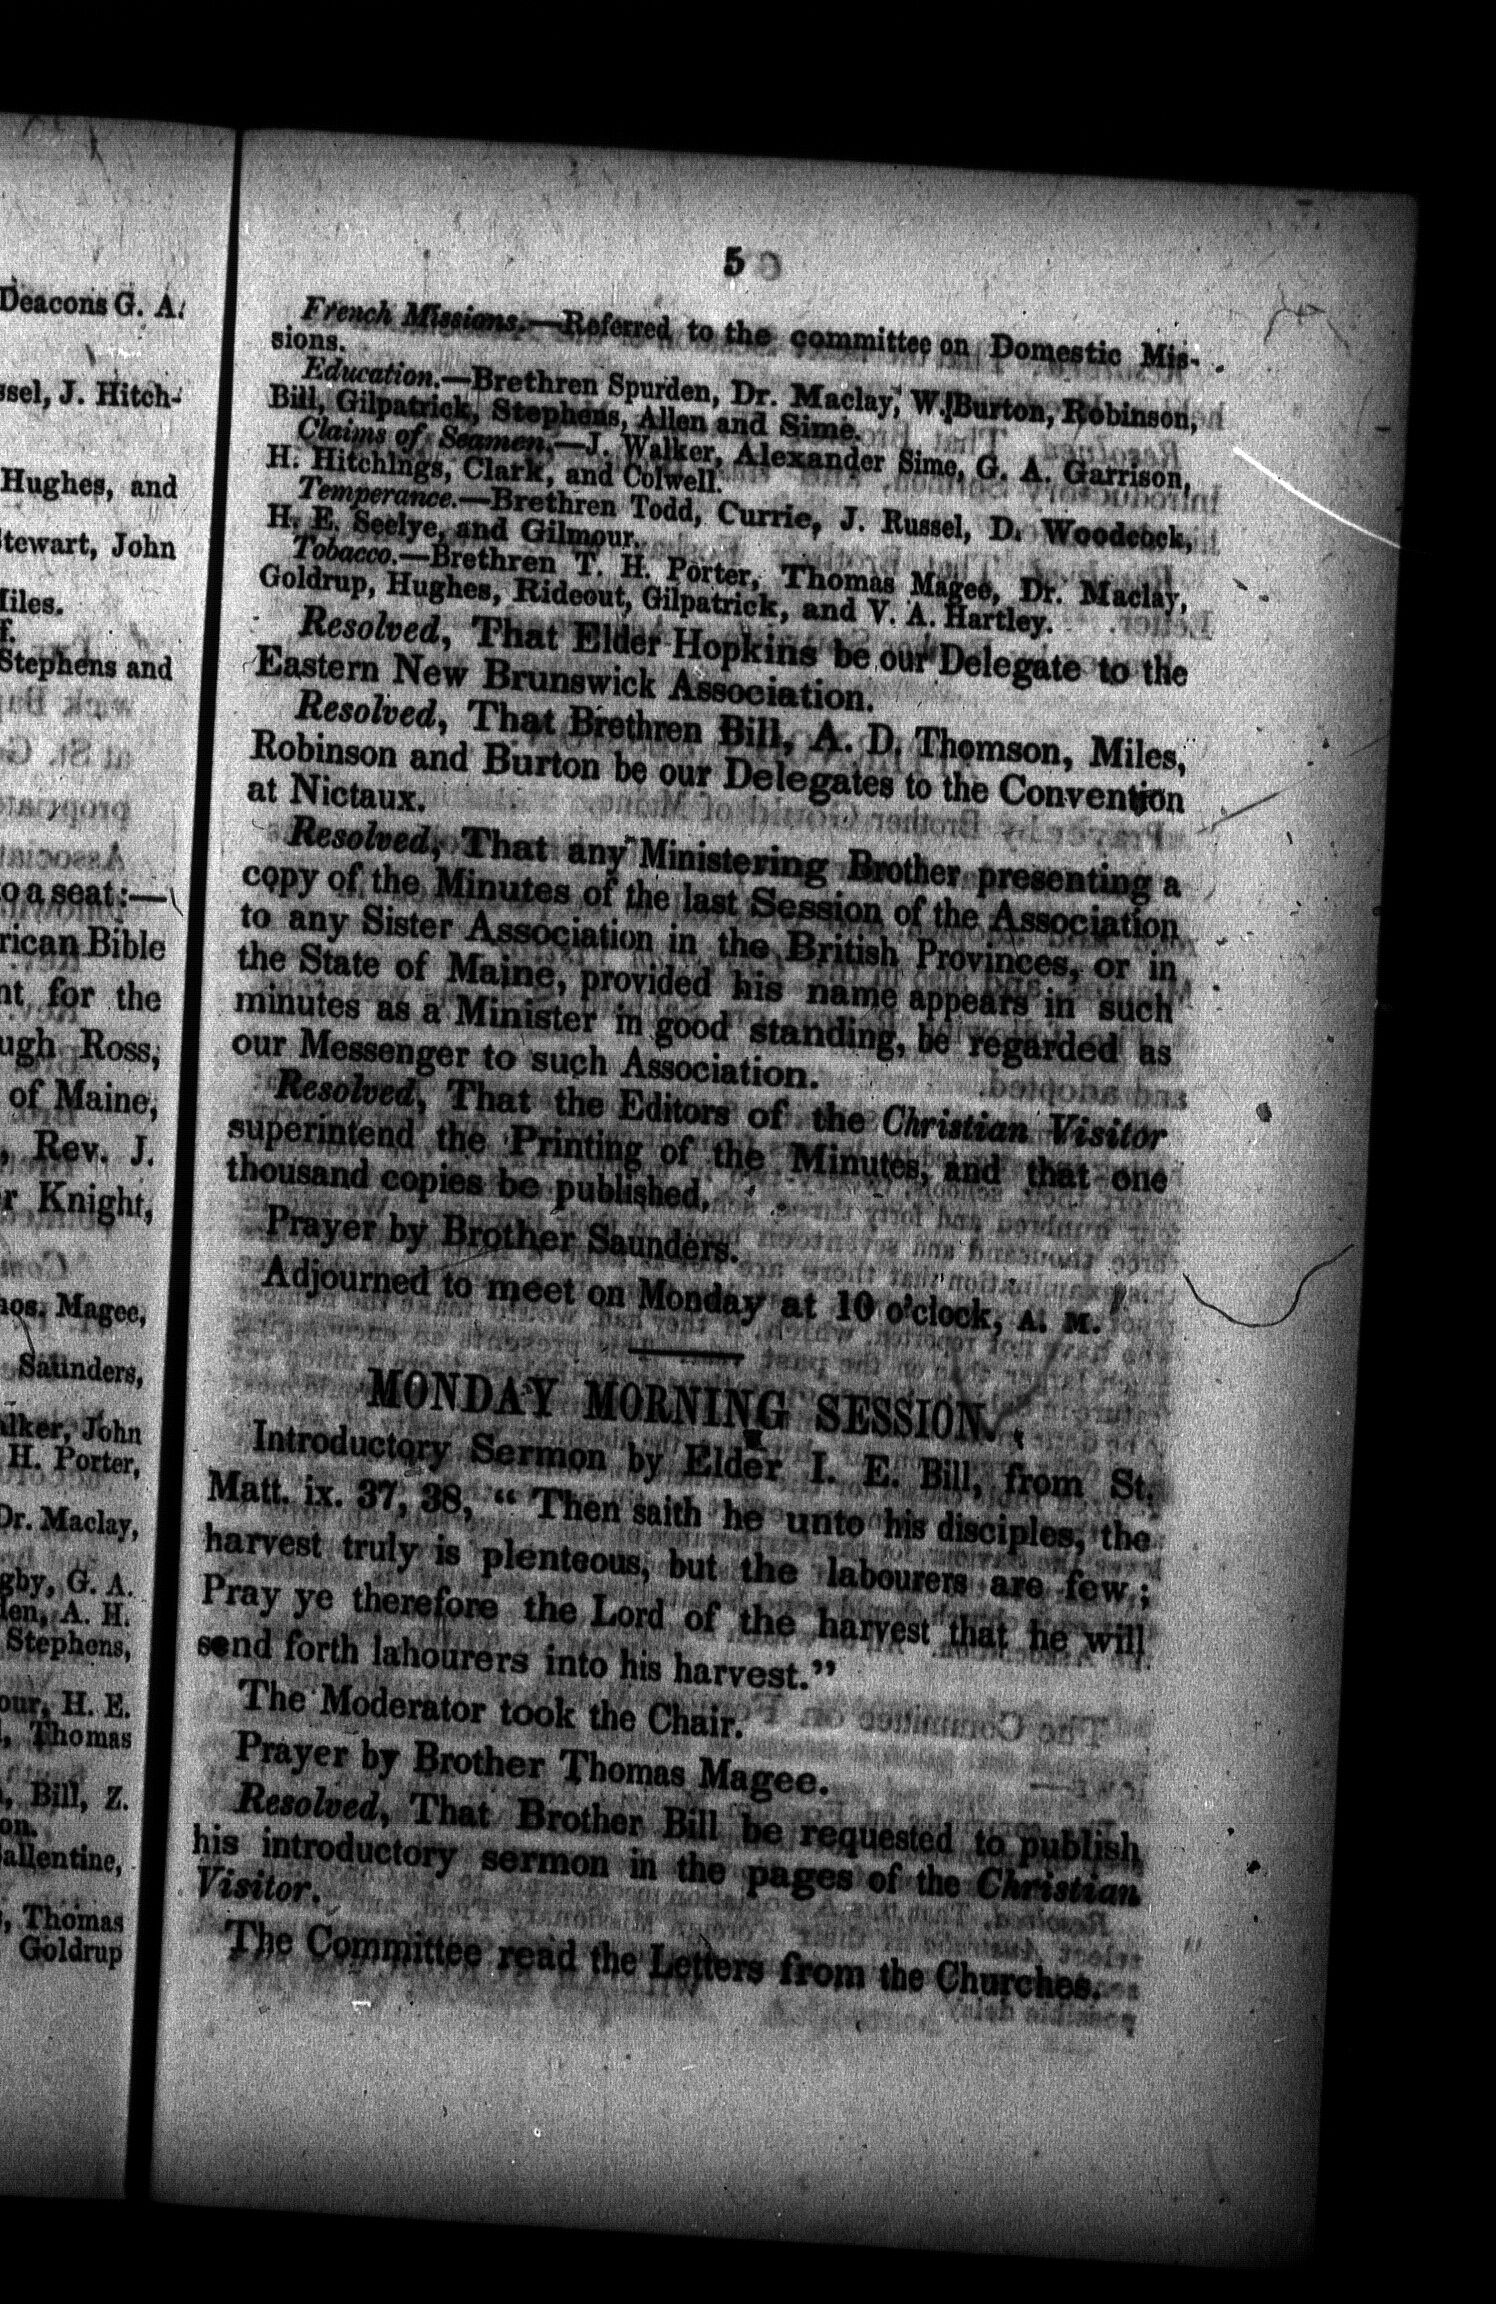 Deacons G. A.
ssel, J. Hitch-
Hughes, and
Stewart, John
Miles.
f.
Stephens and
to a seat:—
rican Bible
nt for the
ugh Ross,
of Maine,
, Rev. J.
r Knight,
hos. Magee,
Saunders,
alker, John
H. Porter,
Dr. Maclay,
gby, G. A.
len, A. H.
Stephens,
our, H. E.
, Thomas
, Bill, Z.
on.
allentine,
, Thomas
Goldrup
5
French Missions.—Referred to the committee on Domestic Mis-
sions.
Education.—Brethren Spurden, Dr. Maclay, W. Burton, Robinson,
Bill, Gilpatrick, Stephens, Allen and Sime.
Claims of Seamen.—J. Walker, Alexander Sime, G. A. Garrison,
H. Hitchings, Clark, and Colwell.
Temperance.—Brethren Todd, Currie, J. Russel, D. Woodcock,
H. E. Seelye, and Gilmour.
Tobacco.—Brethren T. H. Porter, Thomas Magee, Dr. Maclay,
Goldrup, Hughes, Rideout, Gilpatrick, and V. A. Hartley.
Resolved, That Elder Hopkins be our Delegate to the
Eastern New Brunswick Association.
Resolved, That Brethren Bill, A. D. Thomson, Miles,
Robinson and Burton be our Delegates to the Convention
at Nictaux.
Resolved, That any Ministering Brother presenting a
copy of the Minutes of the last Session of the Association
to any Sister Association in the British Provinces, or in
the State of Maine, provided his name appears in such
minutes as a Minister in good standing, be regarded as
our Messenger to such Association.
Resolved, That the Editors of the Christian Visitor
superintend the Printing of the Minutes, and that one
thousand copies be published.
Prayer by Brother Saunders.
Adjourned to meet on Monday at 10 o'clock, A. M.
MONDAY MORNING SESSION.
Introductory Sermon by Elder I. E. Bill, from St.
Matt. ix. 37, 38, “ Then saith he unto his disciples, the
harvest truly is plenteous, but the labourers are few;
Pray ye therefore the Lord of the harvest that he will
send forth lahourers into his harvest.”
The Moderator took the Chair.
Prayer by Brother Thomas Magee.
Resolved, That Brother Bill be requested to publish
his introductory sermon in the pages of the Christian
Visitor.
The Committee read the Letters from the Churches.